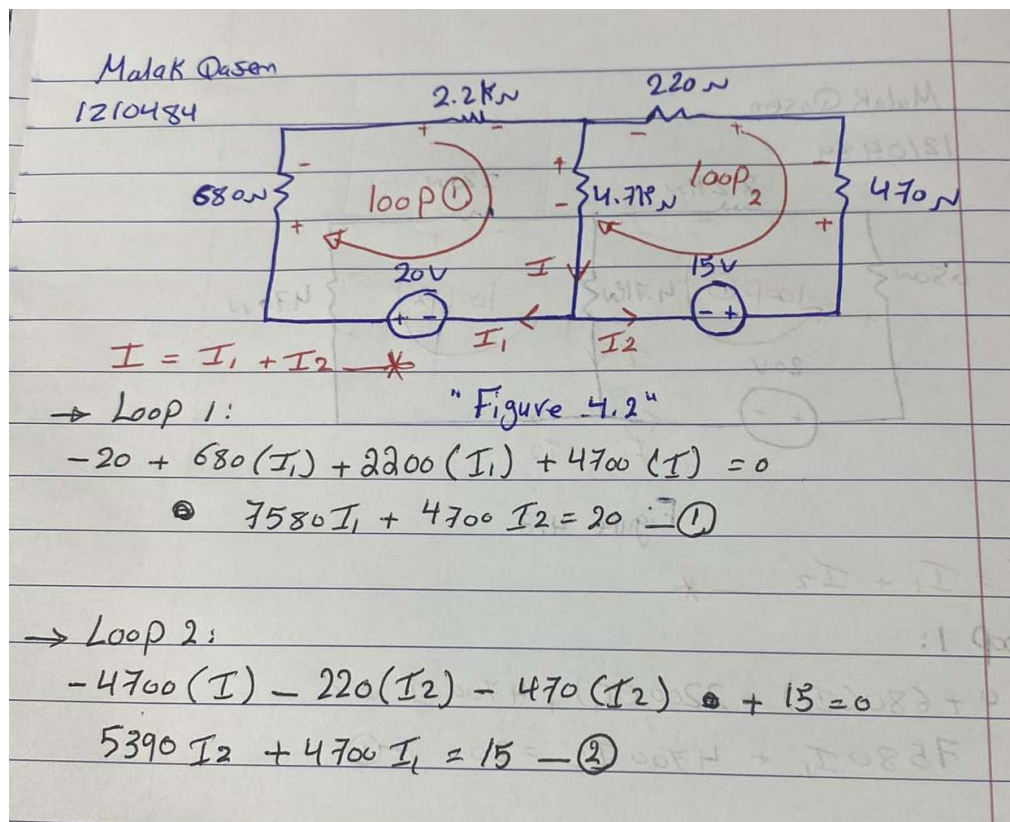 Malak Qasem
1210484
2.2KΩ
220Ω
680Ω
+ -
- +
-
+
loop ①
+
-
4.7KΩ
loop 2
-
+
470Ω
20V
+ -
I
15V
- +
I1
I2
I = I1 + I2 *
"Figure 4.2"
→ Loop 1:
-20 + 680(I1) + 2200(I1) + 4700(I) = 0
7580I1 + 4700 I2 = 20 — ①
→ Loop 2:
-4700(I) - 220(I2) - 470(I2) + 15 = 0
5390 I2 + 4700 I1 = 15 — ②